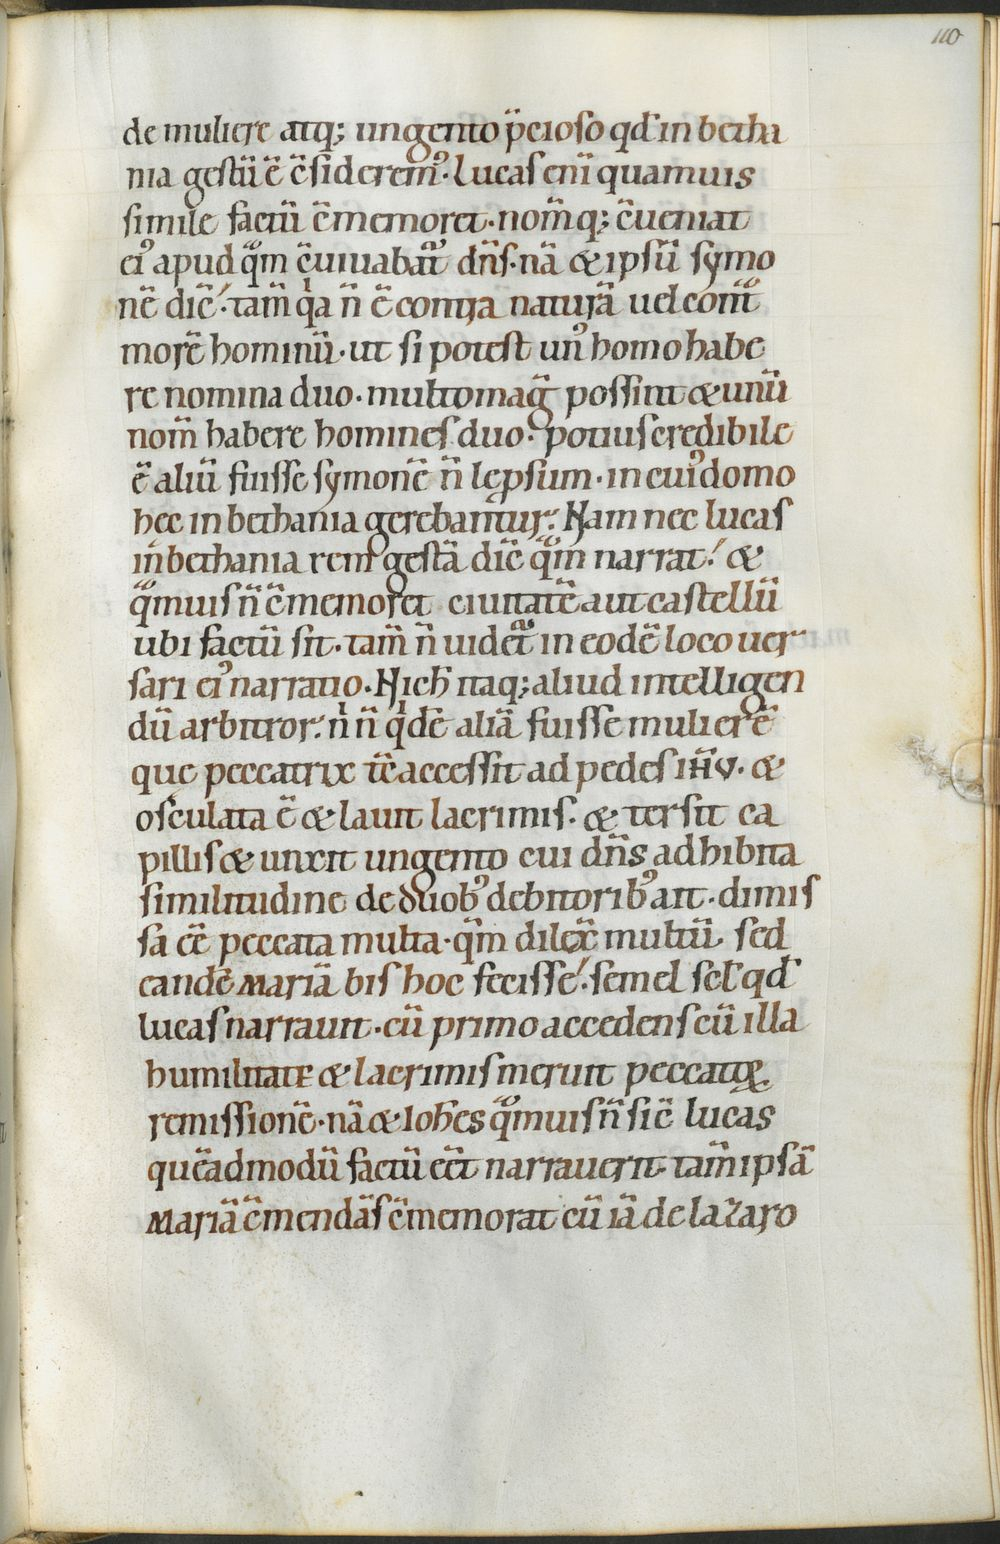 110
de muliere atq; ungento p̄cioso qđ in betha
nia gestū ē c̄siderem᷒. Lucas eni̅ quamuis
simile factū c̄memoret. nom̄q; c̄ueniat
ei᷒ apud qͦm c̄uiuabat᷑ dn̄s. nā & ipsū symo
nē dic̄. tam̄ qͥa n̄ ē contra naturā uel cont̄ͣ
morē hominū. ut si potest un᷒ homo habe
re nomina duo. multomaḡ possint & unū
nom̄ habere homines duo. potius credibile
ē aliū fuisse symonē n̄ lep̱sum. in cui᷒ domo
hec in bethania gerebantur. Nam nec lucas
in̄ bethania rem gestā dic̄ qͦm narrat. &
qͣmuis n̄ c̄memoret ciuitatē aut castellū
ubi factū sit. tam̄ n̄ uidet᷑ in eodē loco uer
sari ei᷒ narratio. Nich̄ itaq; aliud intelligen
dū arbitror. nͥ n̄ qͥdē aliā fuisse mulierē
que peccatrix tc̄ accessit ad pedes ih̄u. &
osculata ē & lauit lacrimis. & tersit ca
pillis & unxit ungento cui dn̄s adhibita
similitudine de duob᷒ debitorib᷒ ait. dimis
sa eē peccata multa. qm̄ dilex̄ multū sed
eandē Mariā bis hoc fecisse. semel scł qđ
lucas narrauit. cū primo accedens cū illa
humilitate & lacrimis meruit peccatoꝝ
remissionē. nā & Ioh̄es qͣmuis n̄ sic̄ lucas
quēadmodū factū eēt narrauerit. tam̄ ipsā
Mariā c̄mendās c̄memorat cū iā de lazaro